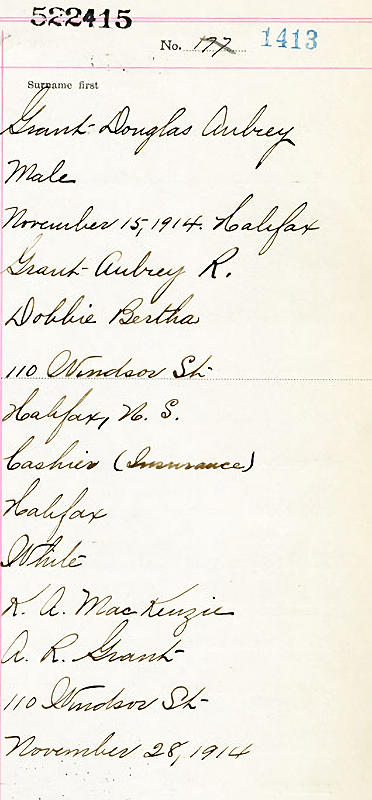 522415
No. 197 1413
Surname first
Grant Douglas Aubrey
Male
November 15, 1914. Halifax
Grant Aubrey R.
Dobbie Bertha
110 Windsor St
Halifax, N. S.
Cashier (Insurance)
Halifax
White
K. A. MacKenzie
A. R. Grant
110 Windsor St
November 28, 1914